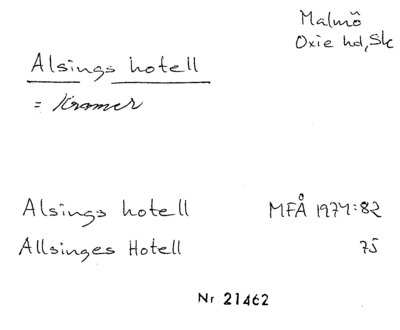 Malmö
Oxie hd, Sk
Alsings hotell
= Kramer
Alsings hotell MFÅ 1974:82
Allsinges Hotell 75
Nr 21462